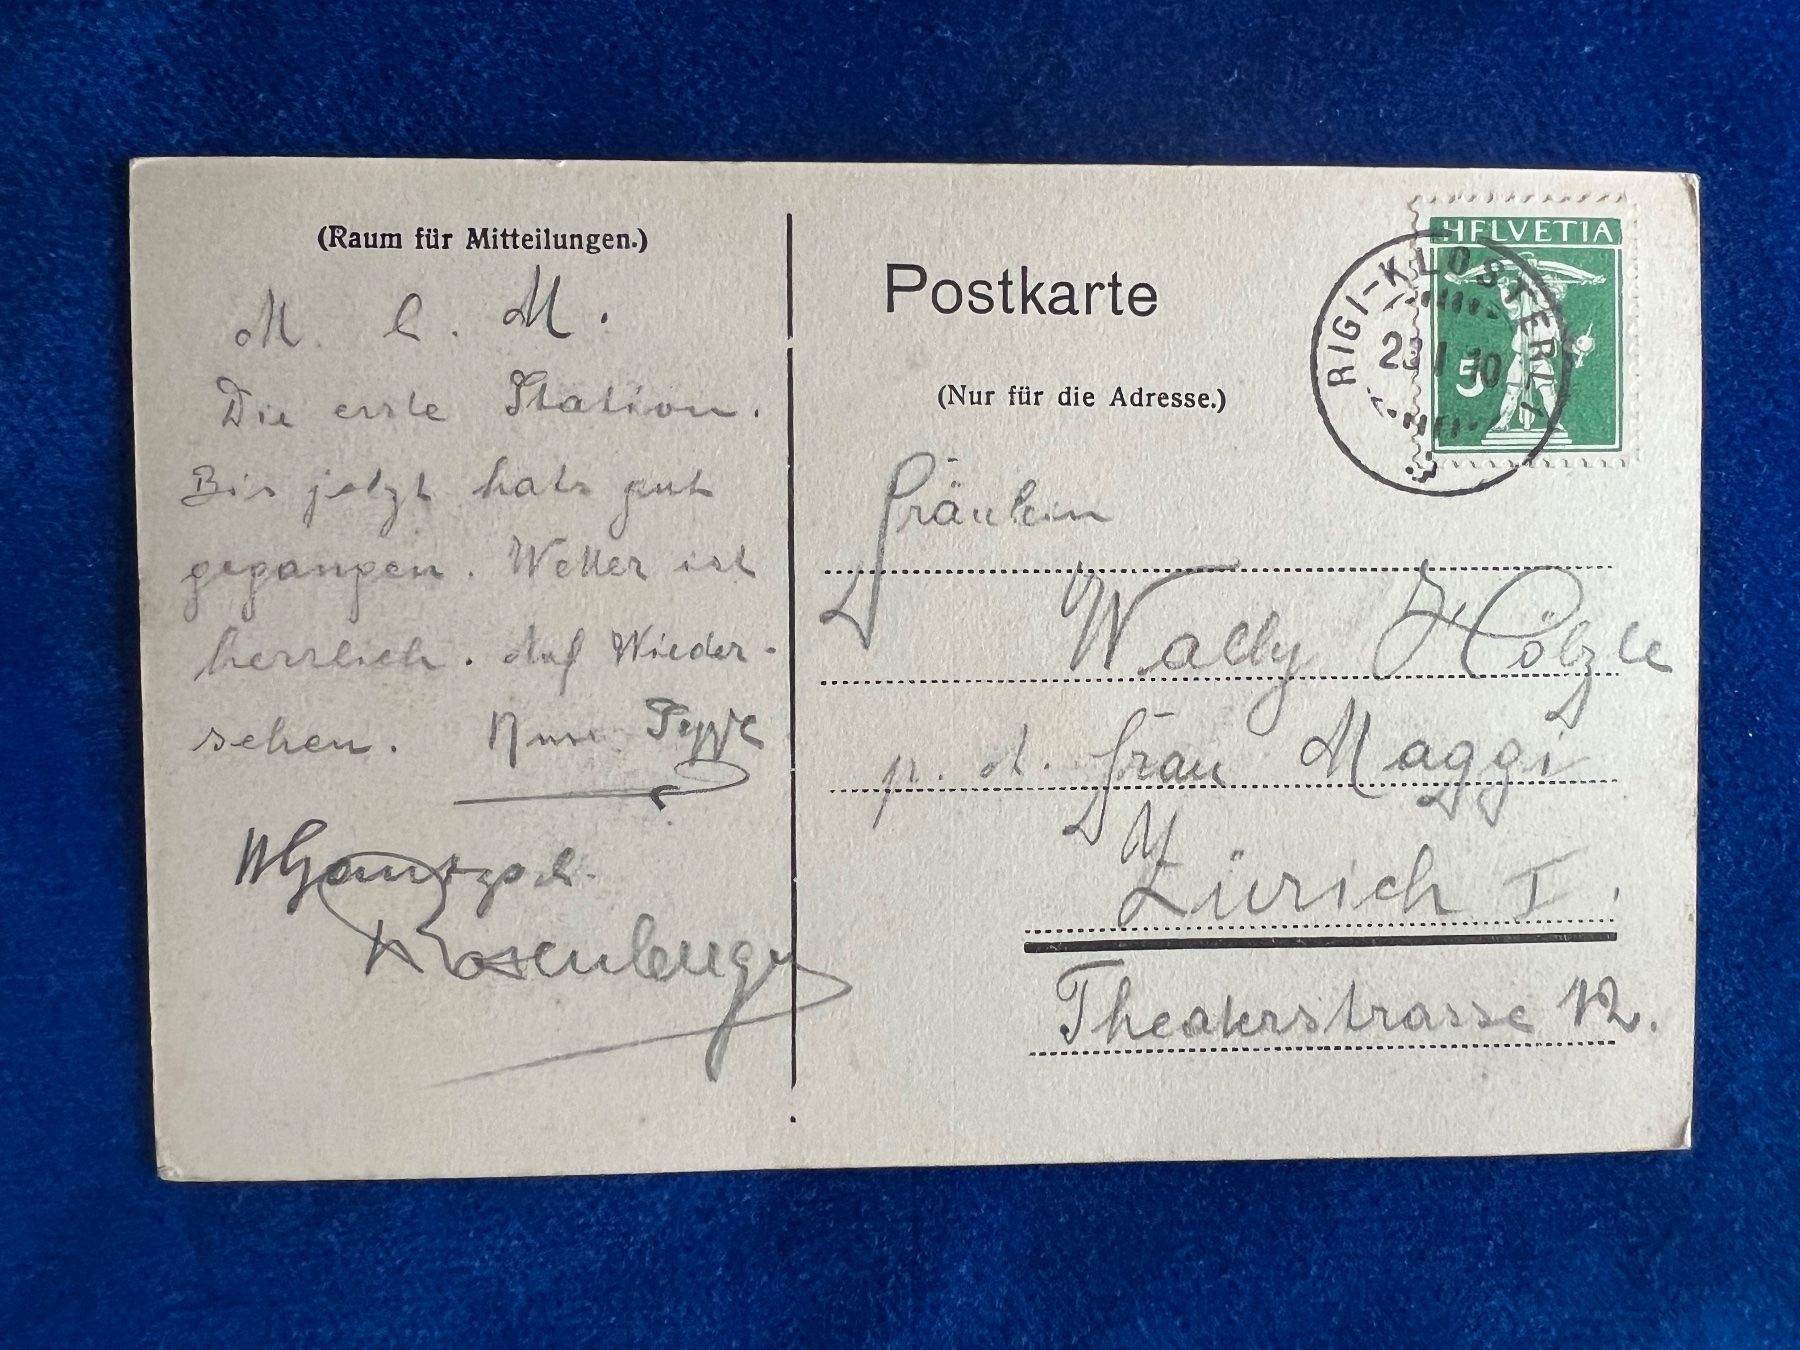 (Raum für Mitteilungen.)
M. l. M.
Die erste Station.
Bis jetzt hats gut
gegangen. Wetter ist
herrlich. Auf Wieder-
sehen.
Rosenberger
Postkarte
(Nur für die Adresse.)
HELVETIA
5
RIGI-KLÖSTERLI
Fräulein
Wally Hölzle
p. d. Frau Maggi
Zürich I.
Theaterstrasse 12.